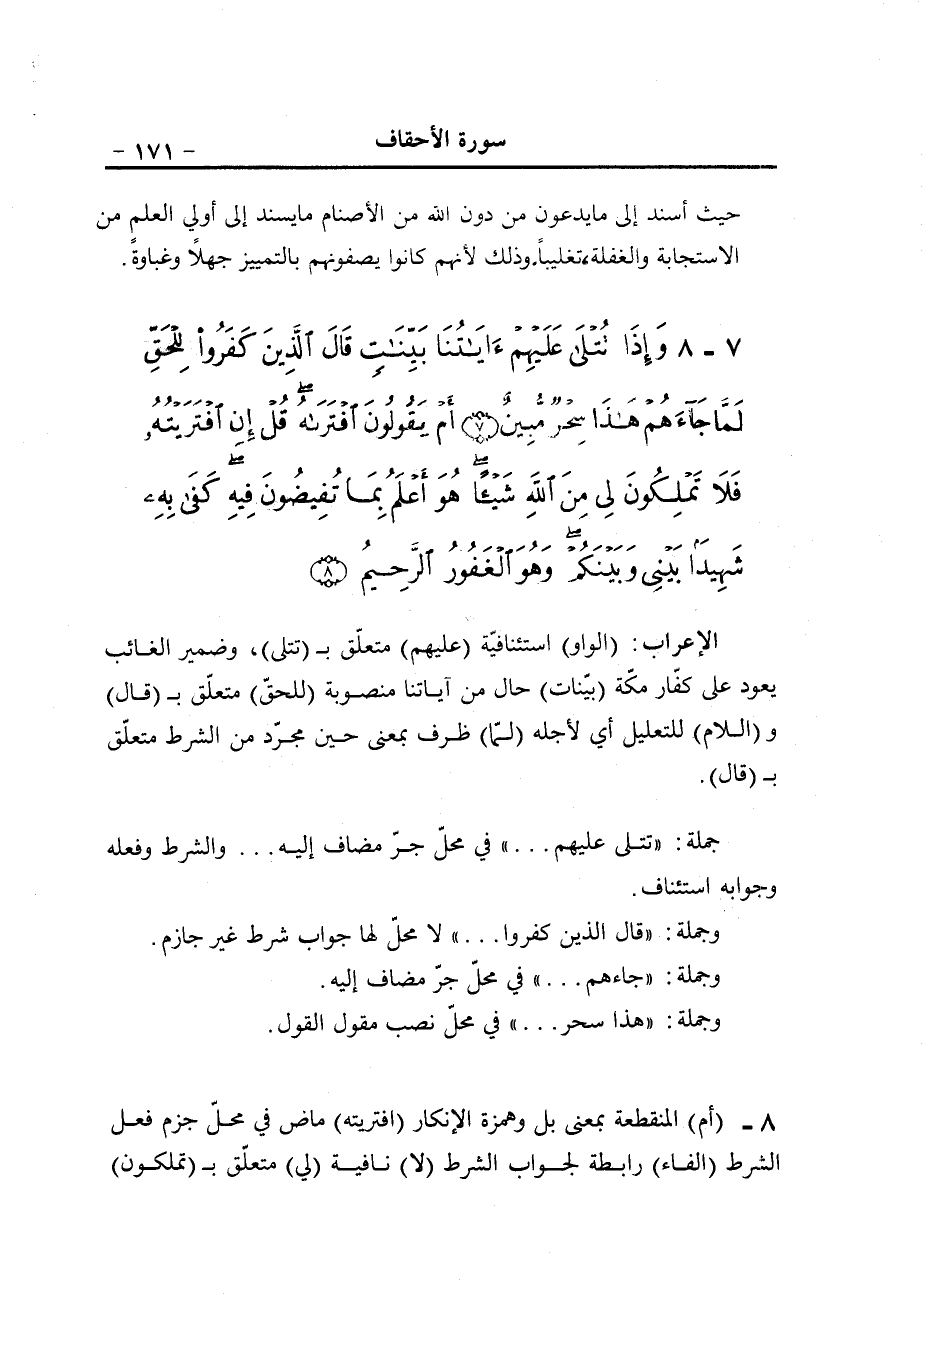 سورة الأحقاف - ١٧١ -
حيث أسند إلى مايدعون من دون الله من الأصنام مايسند إلى أولي العلم من
الاستجابة والغفلة، تغليباً. وذلك لأنهم كانوا يصفونهم بالتمييز جهلاً وغباوةً.
٧ - ٨ وَإِذَا تُتْلَىٰ عَلَيْهِمْ ءَايَٰتُنَا بَيِّنَٰتٍ قَالَ ٱلَّذِينَ كَفَرُواْ لِلْحَقِّ
لَمَّا جَآءَهُمْ هَٰذَا سِحْرٌ مُّبِينٌ ﴿٧﴾ أَمْ يَقُولُونَ ٱفْتَرَىٰهُ ۖ قُلْ إِنِ ٱفْتَرَيْتُهُۥ
فَلَا تَمْلِكُونَ لِى مِنَ ٱللَّهِ شَيْـًٔا ۖ هُوَ أَعْلَمُ بِمَا تُفِيضُونَ فِيهِ ۖ كَفَىٰ بِهِۦ
شَهِيدًۢا بَيْنِى وَبَيْنَكُمْ ۖ وَهُوَ ٱلْغَفُورُ ٱلرَّحِيمُ ﴿٨﴾
الإعراب: (الواو) استئنافيّة (عليهم) متعلّق بـ (تتلى)، وضمير الغائب
يعود على كفّار مكّة (بيّنات) حال من آياتنا منصوبة (للحقّ) متعلّق بـ (قال)
و (اللام) للتعليل أي لأجله (لـمّا) ظرف بمعنى حين مجرّد من الشرط متعلّق
بـ (قال).
جملة: «تتلى عليهم...» في محلّ جرّ مضاف إليه... والشرط وفعله
وجوابه استئناف.
وجملة: «قال الذين كفروا...» لا محلّ لها جواب شرط غير جازم.
وجملة: «جاءهم...» في محلّ جرّ مضاف إليه.
وجملة: «هذا سحر...» في محلّ نصب مقول القول.
٨ - (أم) المنقطعة بمعنى بل وهمزة الإنكار (افتريته) ماض في محلّ جزم فعل
الشرط (الفاء) رابطة لجواب الشرط (لا) نافية (لي) متعلّق بـ (تملكون)